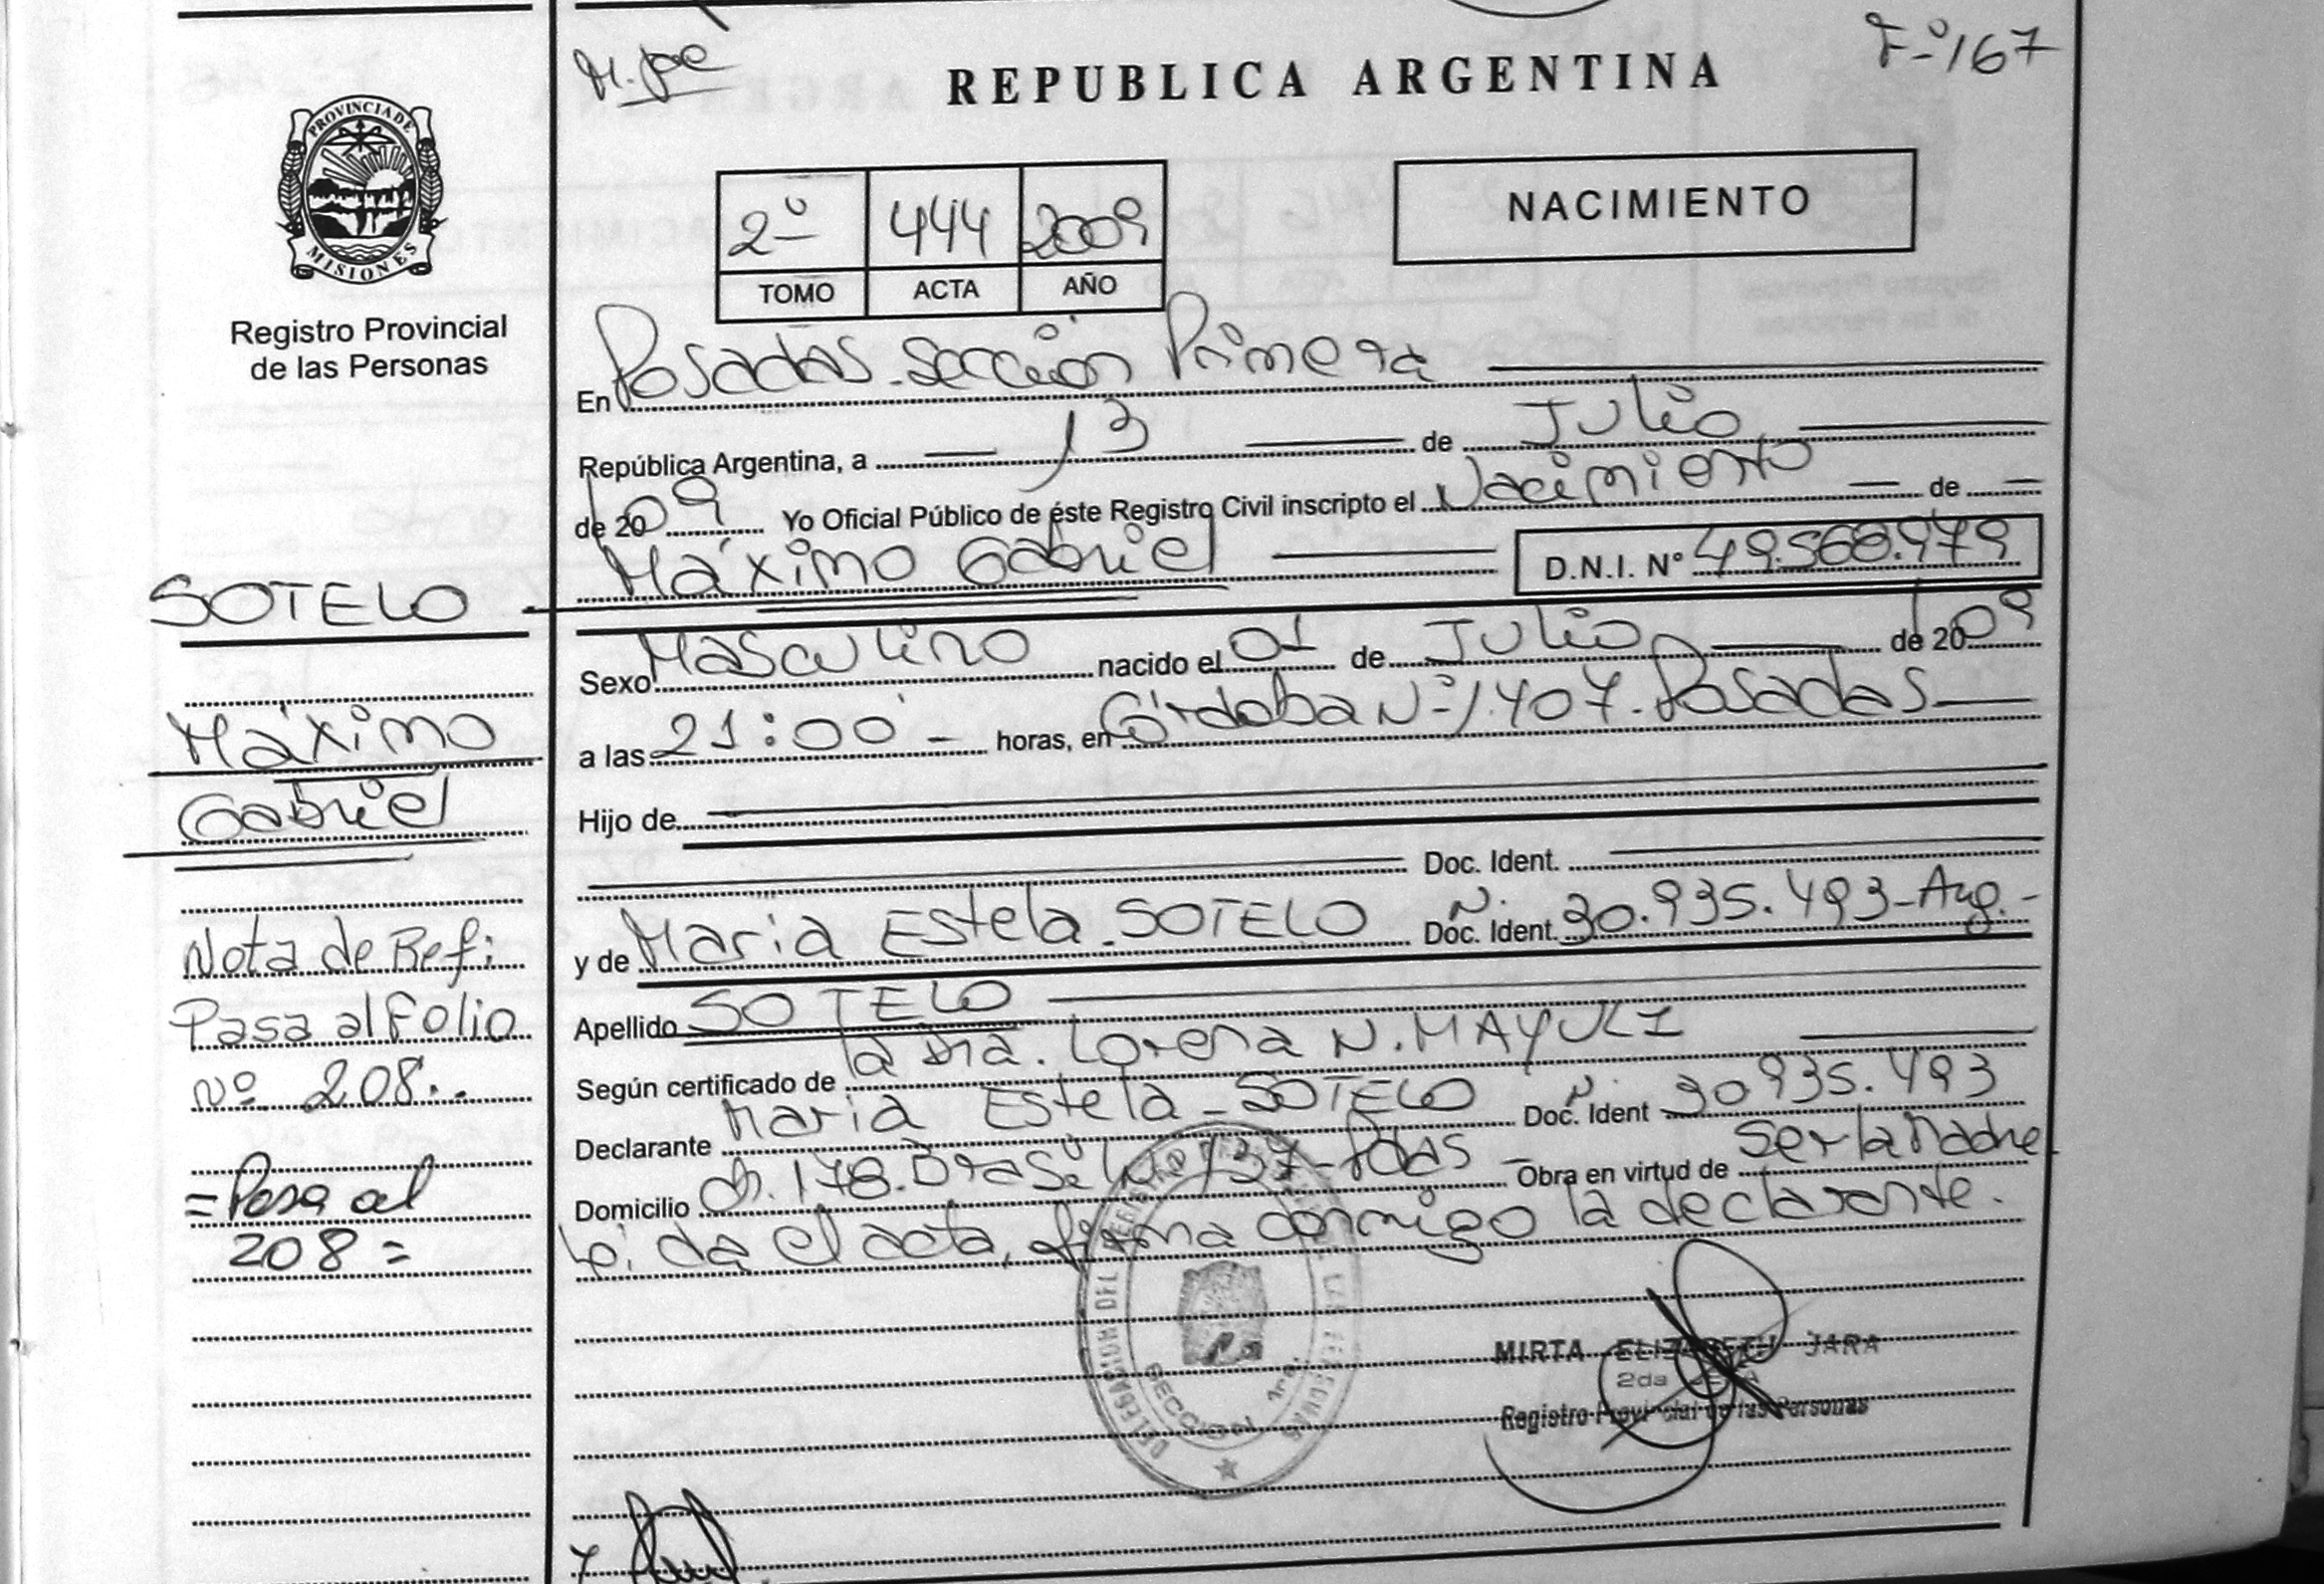 M. Jpe
F-º 167
REPUBLICA ARGENTINA
PROVINCIA DE
MISIONES
Registro Provincial
de las Personas
2º 444 2009
TOMO ACTA AÑO
NACIMIENTO
En Posadas - Sección Primera
República Argentina, a 13 de Julio
de 2009 Yo Oficial Público de éste Registro Civil inscripto el Nacimiento de
Máximo Gabriel D.N.I. Nº 49.568.979
SOTELO
Máximo
Gabriel
Nota de Ref:
Pasa al Folio
Nº 208..
= Pasa al
208 =
Sexo Masculino nacido el 01 de Julio de 2009
a las 21:00 - horas, en Córdoba Nº 1.407 - Posadas
Hijo de
Doc. Ident.
y de Maria Estela - SOTELO Doc. Ident. Nº 30.935.493 - Arg. -
Apellido SOTELO
Según certificado de la Dra. Lorena N. MAYULI
Declarante Maria Estela - SOTELO Doc. Ident Nº 30935.493
Domicilio Ch. 178. Brasil Nº 137 - Pdas - Obra en virtud de ser la Madre
Leida el acta, firma conmigo la declarante.
DELEGACION DEL REGISTRO LAS PERSONAS
SECCION 1ra.
MIRTA ELIZABETH JARA
2da JEFA
Registro Provincial de las Personas